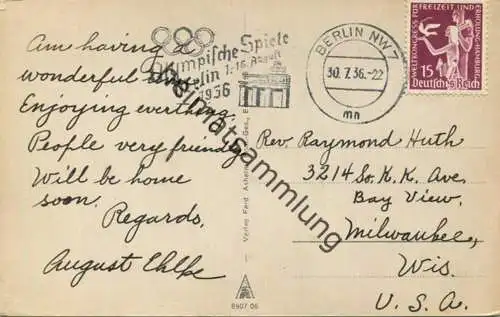 Am having a
wonderful time.
Enjoying everthing.
People very friendly
Will be home
soon.
Regards,
August Ehlke
Olympische Spiele
Berlin 1.-16. August
1936
BERLIN NW7
30.7.36.-22
mn
WELTKONGRESS FÜR FREIZEIT UND ERHOLUNG·HAMBURG
15
Deutsches Reich
Rev. Raymond Huth
3214 So. K. K. Ave.
Bay View.
Milwaukee,
Wis.
U. S. A.
Verlag Ferd. Ashelm
8907 06
Heimatsammlung